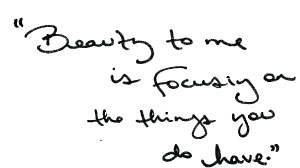 "Beauty to me
is focusing on
the things you
do have."